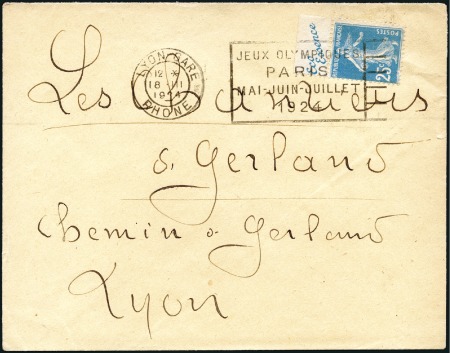 LYON GARE
12 *
18 II
1924
RHONE
JEUX OLYMPIQUES
PARIS
MAI-JUIN-JUILLET
1924
Essence
POSTES
25c
Les
à Gerland
Chemin à Gerland
Lyon